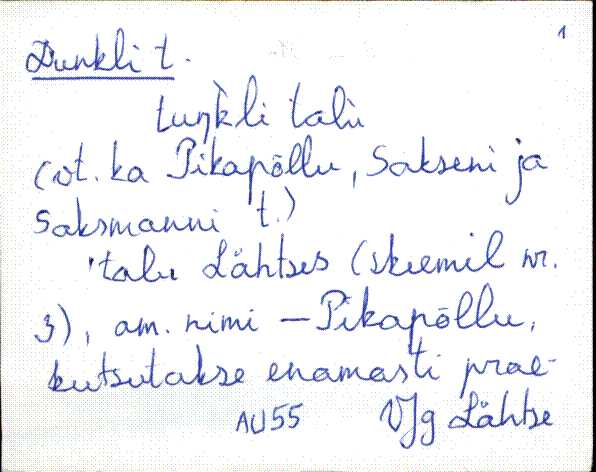 1
Dunkli t.
tuŋk̀li talù
(vt. ka Pikapõllu, Sakseni ja
Saksmanni t.)
'talu Lähtses (skeemil nr.
3), am. nimi — Pikapõllu,
kutsutakse enamasti prae-
AU55 VJg Lähtse